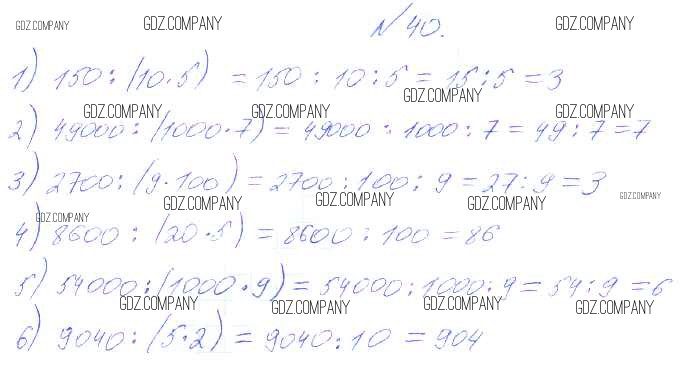 GDZ.COMPANY GDZ.COMPANY № 40. GDZ.COMPANY
1) 150 : (10 · 5) = 150 : 10 : 5 = 15 : 5 = 3
GDZ.COMPANY
GDZ.COMPANY GDZ.COMPANY GDZ.COMPANY
2) 49000 : (1000 · 7) = 49000 : 1000 : 7 = 49 : 7 = 7
3) 2700 : (9 · 100) = 2700 : 100 : 9 = 27 : 9 = 3
GDZ.COMPANY GDZ.COMPANY GDZ.COMPANY GDZ.COMPANY
GDZ.COMPANY
4) 8600 : (20 · 5) = 8600 : 100 = 86
5) 54000 : (1000 · 9) = 54000 : 1000 : 9 = 54 : 9 = 6
GDZ.COMPANY GDZ.COMPANY GDZ.COMPANY GDZ.COMPANY
6) 9040 : (5 · 2) = 9040 : 10 = 904